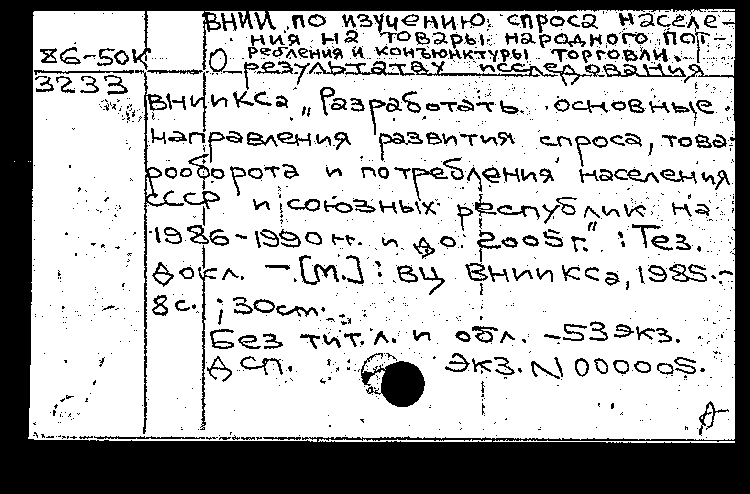 ВНИИ по изучению спроса населе-
ния на товары народного пот-
86-50К
ребления и конъюнктуры торговли.
О результатах исследования
3233
ВНИИКСа „Разработать основные
направления развития спроса, това-
рооборота и потребления населения
СССР и союзных республик на
1986-1990 гг. и до 2005 г." : Тез.
докл. -.[М.] : ВЦ ВНИИКСа, 1985.-
8 с. ; 30 см.
Без тит. л. и обл. - 53 экз.
ДСП. Экз. N 000005.